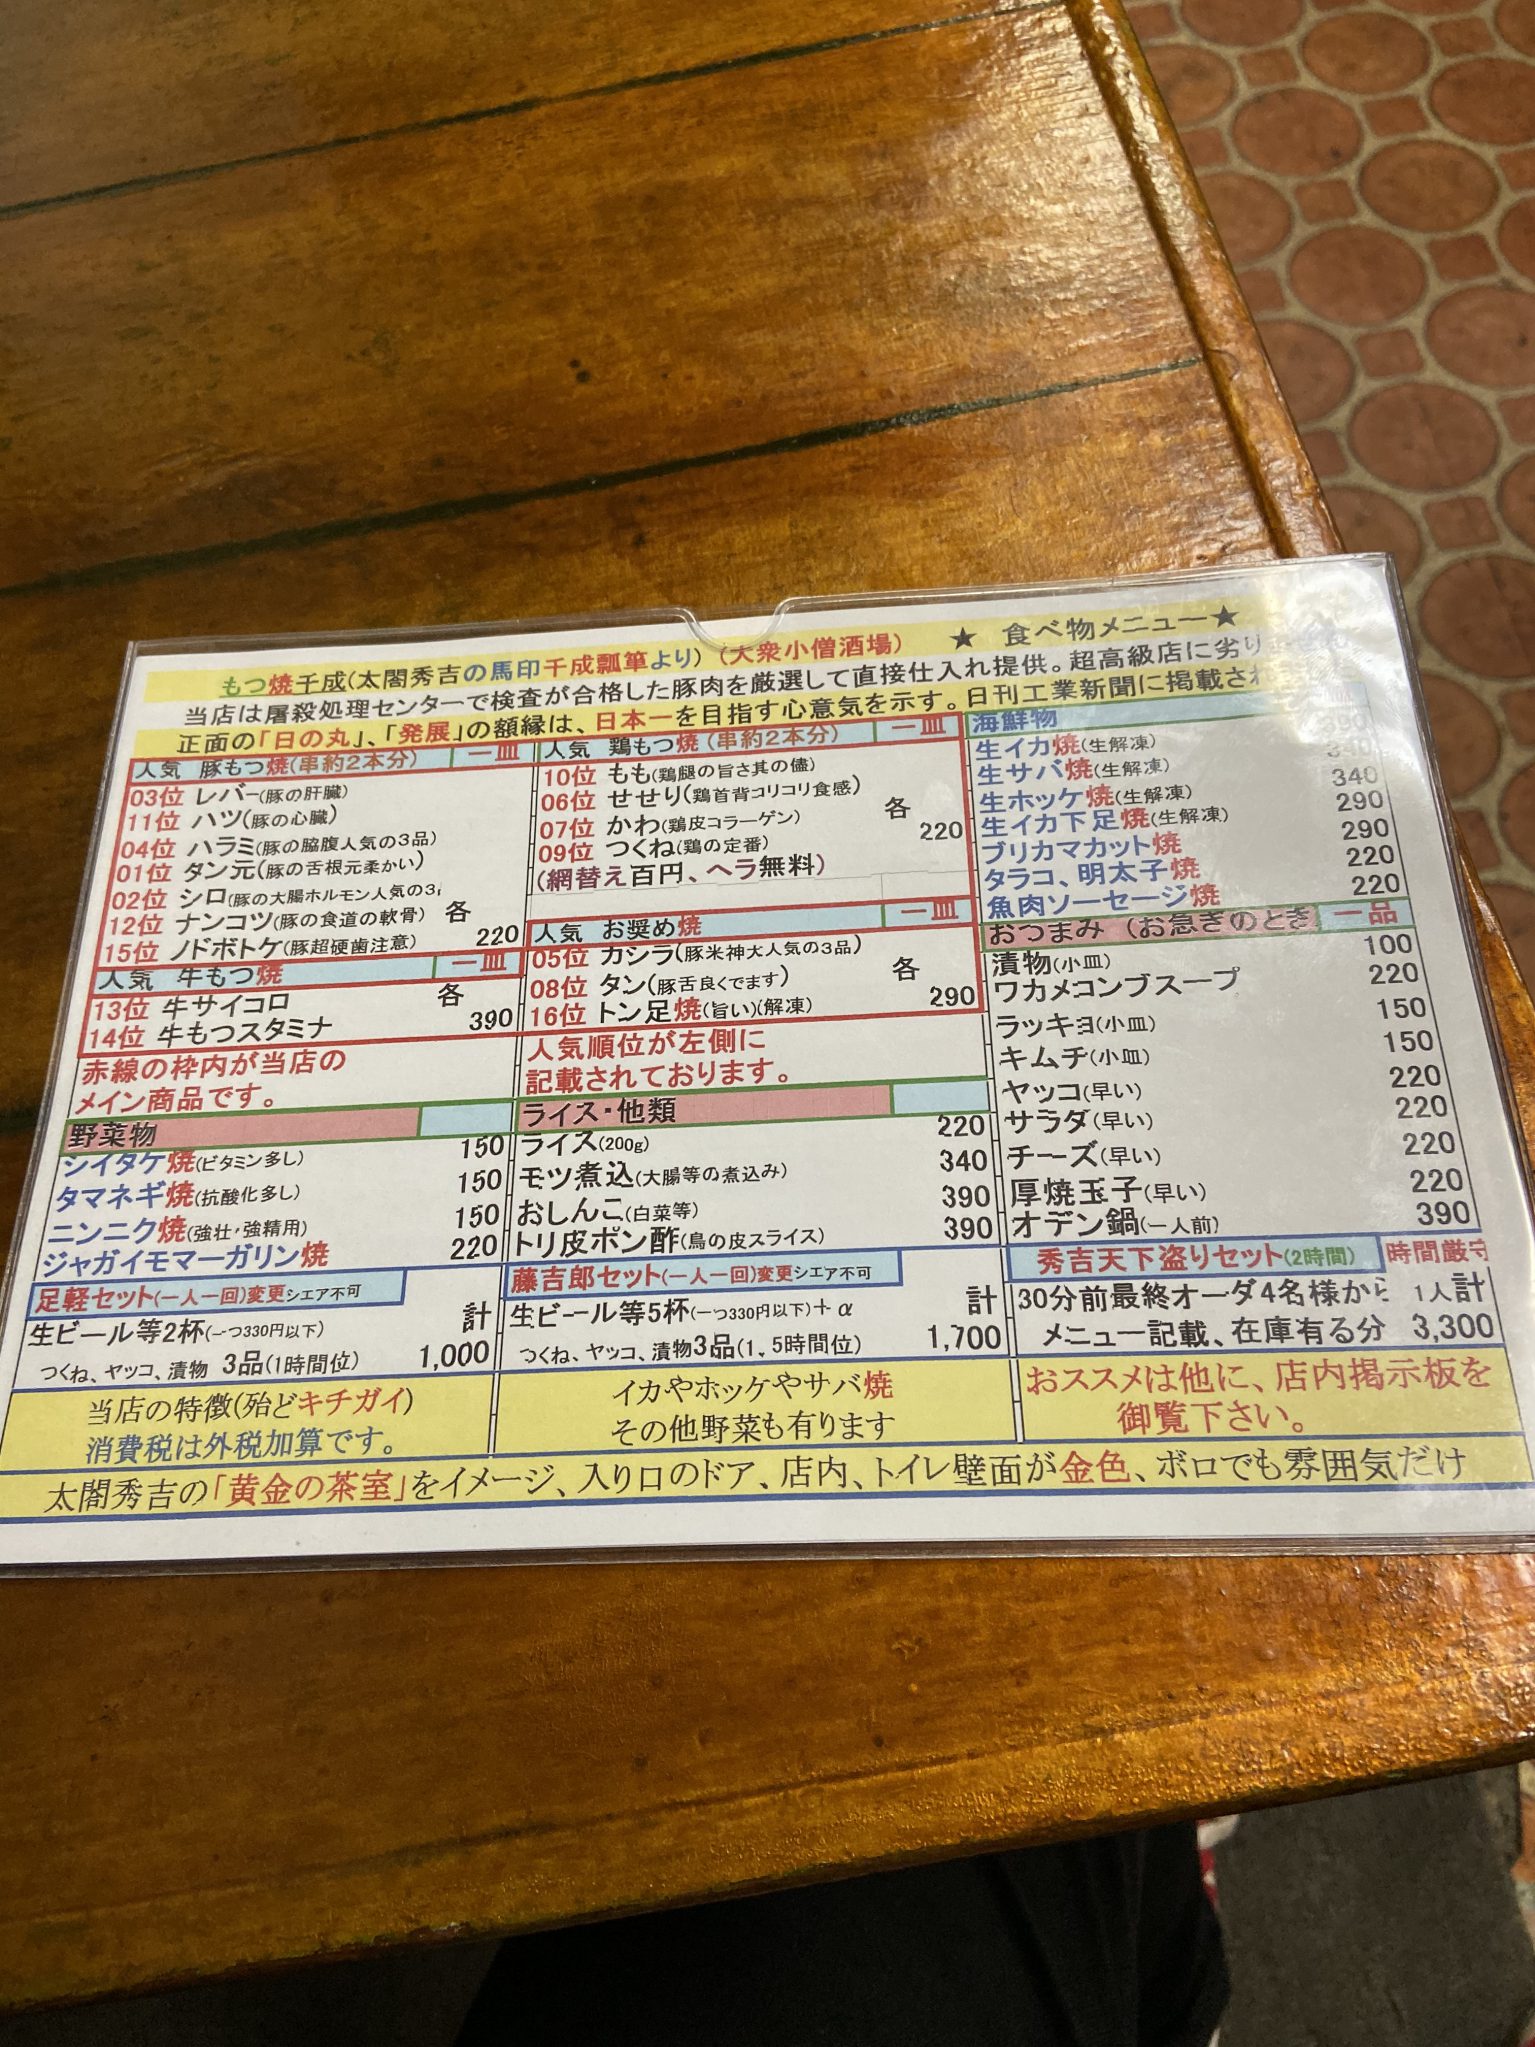 もつ焼千成(太閤秀吉の馬印千成瓢箪より) (大衆小僧酒場) ★ 食べ物メニュー★
当店は屠殺処理センターで検査が合格した豚肉を厳選して直接仕入れ提供。超高級店に劣り
正面の「日の丸」、「発展」の額縁は、日本一を目指す心意気を示す。日刊工業新聞に掲載され
人気 豚もつ焼(串約2本分) 一皿
03位 レバー(豚の肝臓)
11位 ハツ(豚の心臓)
04位 ハラミ(豚の脇腹人気の3品)
01位 タン元(豚の舌根元柔かい)
02位 シロ(豚の大腸ホルモン人気の3
12位 ナンコツ(豚の食道の軟骨) 各
15位 ノドボトケ(豚超硬歯注意) 220
人気 牛もつ焼 一皿
13位 牛サイコロ 各
14位 牛もつスタミナ 390
赤線の枠内が当店の
メイン商品です。
野菜物
シイタケ焼(ビタミン多し) 150
タマネギ焼(抗酸化多し) 150
ニンニク焼(強壮・強精用) 150
ジャガイモマーガリン焼 220
足軽セット(一人一回)変更シエア不可
生ビール等2杯(一つ330円以下) 計
つくね、ヤッコ、漬物 3品(1時間位) 1,000
人気 鶏もつ焼 (串約2本分) 一皿
10位 もも(鶏腿の旨さ其の儘)
06位 せせり(鶏首背コリコリ食感)
07位 かわ(鶏皮コラーゲン) 各
09位 つくね(鶏の定番) 220
(網替え百円、ヘラ無料)
人気 お奨め焼 一皿
05位 カシラ(豚米神大人気の3品)
08位 タン(豚舌良くでます) 各
16位 トン足焼(旨い)(解凍) 290
人気順位が左側に
記載されております。
ライス・他類
ライス(200g) 220
モツ煮込(大腸等の煮込み) 340
おしんこ(白菜等) 390
トリ皮ポン酢(鳥の皮スライス) 390
藤吉郎セット(一人一回)変更シエア不可
生ビール等5杯(一つ330円以下)+α 計
つくね、ヤッコ、漬物3品(1、5時間位) 1,700
海鮮物
生イカ焼(生解凍) 390
生サバ焼(生解凍) 340
生ホッケ焼(生解凍) 340
生イカ下足焼(生解凍) 290
ブリカマカット焼 290
タラコ、明太子焼 220
魚肉ソーセージ焼 220
おつまみ (お急ぎのとき 一品
漬物(小皿) 100
ワカメコンブスープ 220
ラッキョ(小皿) 150
キムチ(小皿) 150
ヤッコ(早い) 220
サラダ(早い) 220
チーズ(早い) 220
厚焼玉子(早い) 220
オデン鍋(一人前) 390
秀吉天下盗りセット(2時間) 時間厳守
30分前最終オーダ4名様から 1人計
メニュー記載、在庫有る分 3,300
当店の特徴(殆どキチガイ)
消費税は外税加算です。
イカやホッケやサバ焼
その他野菜も有ります
おススメは他に、店内掲示板を
御覧下さい。
太閤秀吉の「黄金の茶室」をイメージ、入り口のドア、店内、トイレ壁面が金色、ボロでも雰囲気だけ